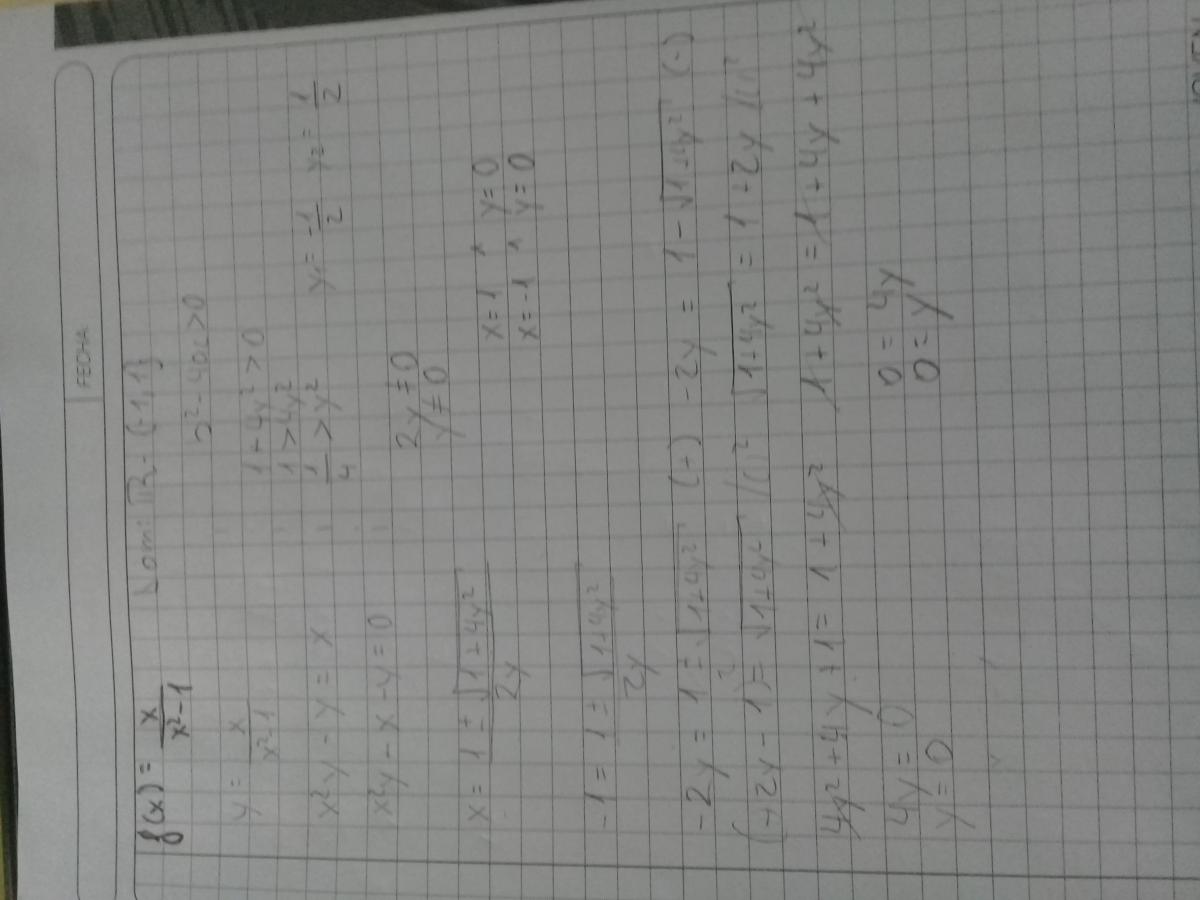 FECHA
f(x) = x/(x²-1) Dom: ℝ - {-1,1}
y = x/(x²-1)
x²y - y = x 1+4y² > 0
1 > 4y²
1/4 > y² y₁ = -1/2 y₂ = 1/2
x²y - x - y = 0 2y ≠ 0
y ≠ 0
x = (1 ± √(1+4y²))/2y x = 1 ^ y = 0
x = -1 ^ y = 0
-1 = (1 ± √(1+4y²))/2y
-2y = 1 ± √(1+4y²) (+) -2y = 1 - √(1+4y²) (-)
(+2y - 1)² = √(1+4y²) /()² √(1+4y²) = 1 + 2y /()²
4y² + 4y + 1 = 1 + 4y² 1 + 4y² = 1 + 4y + 4y²
4y = 0 0 = 4y
y = 0 0 = y